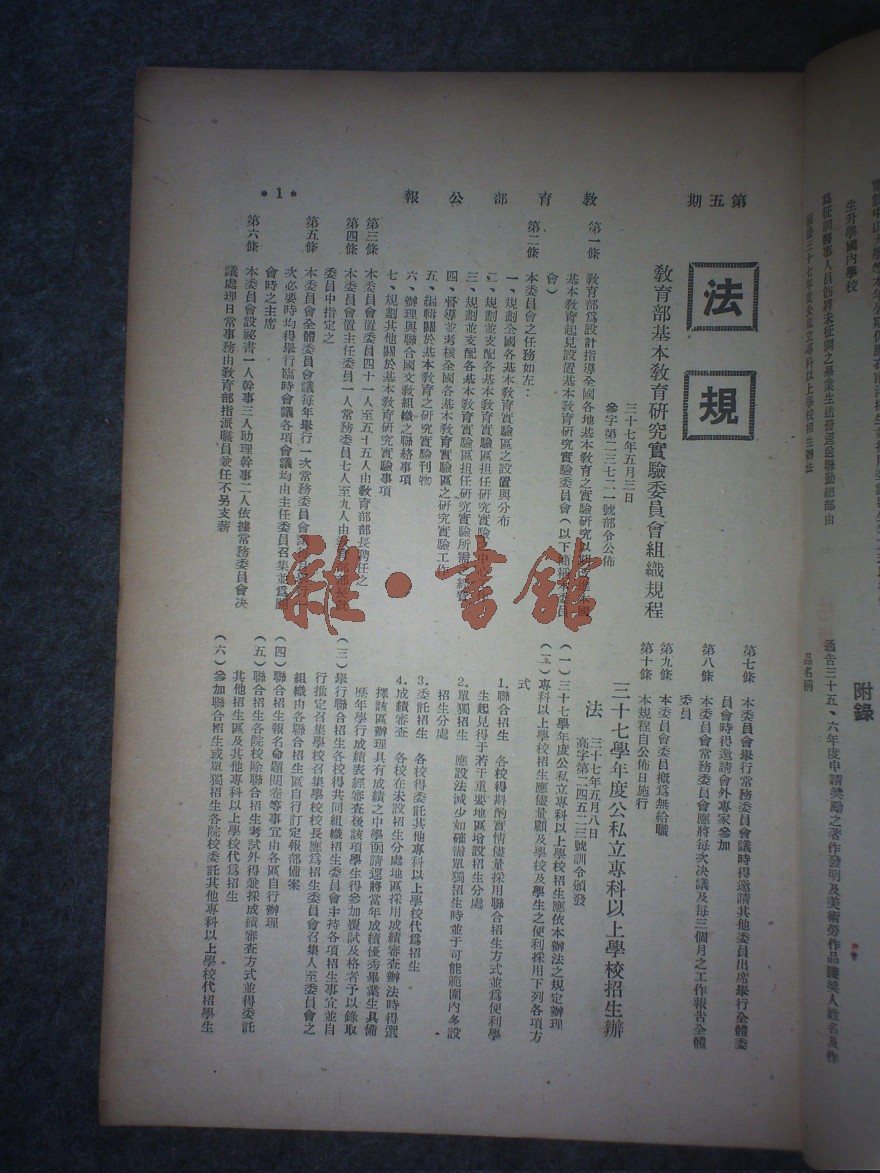 第五期
教育部公報
•1•
法規
教育部基本教育研究實驗委員會組織規程
三十七年五月三日
參字第二三七二一號部令公佈
第一條　教育部為設計指導全國各地基本教育之實驗研究以
基本教育起見設置基本教育研究實驗委員會（以下簡稱本委員
會）
第二條　本委員會之任務如左：
一、規劃全國各基本教育實驗區之設置與分布
二、規劃並支配各基本教育實驗區担任研究實驗
三、規劃並支配各基本教育實驗區担任研究實驗所需
四、督導並考核全國各基本教育實驗區之研究實驗工作
五、編輯關於基本教育之研究實驗刊物
六、辦理與聯合國文教組織之聯絡事項
七、規劃其他關於基本教育研究實驗事項
第三條　本委員會置委員四十一人至五十五人由教育部部長聘任之
第四條　本委員會置主任委員一人常務委員七人至九人由
委員中指定之
第五條　本委員會全體委員會議每年舉行一次常務委員會
次必要時均得舉行臨時會議各項會議均由主任委員召集並為開
會時之主席
第六條　本委員會設祕書一人幹事三人助理幹事二人依據常務委員會決
議處理日常事務由教育部指派職員兼任不另支薪
第七條　本委員會舉行常務委員會議時得邀請其他委員出席舉行全體委
員會時得邀請會外專家參加
第八條　本委員會常務委員會應將每次決議及每三個月之工作報告全體
委員
第九條　本委員會委員概為無給職
第十條　本規程自公佈日施行
三十七學年度公私立專科以上學校招生辦
法
三十七年五月八日
高字第二四五二三號訓令頒發
（一）三十七學年度公私立專科以上學校招生應依本辦法之規定辦理
（二）專科以上學校招生應儘量顧及學校及學生之便利採用下列各項方
式
1.聯合招生　各校得斟酌實情儘量採用聯合招生方式並為便利學
生起見得于若干重要地區增設招生分處
2.單獨招生　應設法減少如確需單獨招生時並于可能範圍內多設
招生分處
3.委託招生　各校得委託其他專科以上學校代為招生
4.成績審查　各校在未設招生分處地區採用成績審查辦法時得選
擇該區辦理具有成績之中學函請選將當年成績優秀畢業生具備
歷年學行成績表經審查後該項學生得參加覆試及格者予以錄取
（三）舉行聯合招生各校得共同組織招生委員會主持各項招生事宜並自
行推定召集學校召集學校校長應為招生委員會召集人至委員會之
組織由各聯合招生區自行訂定報部備案
（四）聯合招生報名命題閱卷等事宜由各區自行辦理
（五）聯合招生各院校除聯合招生考試外得兼採成績審查方式並得委託
其他招生區及其他專科以上學校代為招生
（六）參加聯合招生或單獨招生各院校委託其他專科以上學校代招學生
雜·書館
生升學國內學校
附錄
通告三十五、六年度申請獎勵之著作發明及美術勞作品獲獎人姓名及作
品名稱